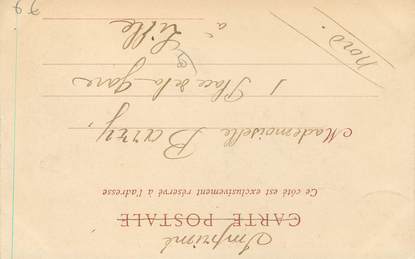 Imprimé
CARTE POSTALE
Ce côté est exclusivement réservé à l'adresse
Mademoiselle Barry,
1 Place de la Gare
à Lille
Nord.